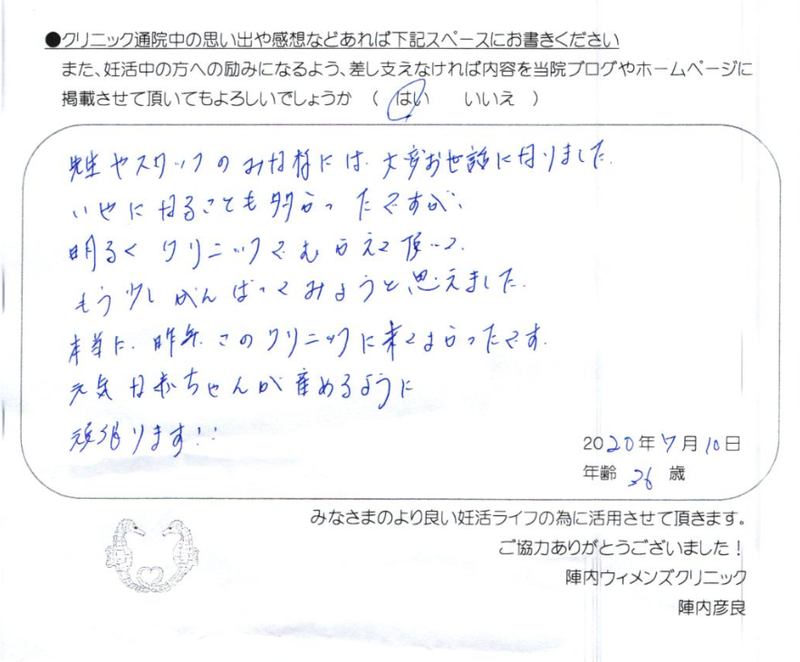 ●クリニック通院中の思い出や感想などあれば下記スペースにお書きください
また、妊活中の方への励みになるよう、差し支えなければ内容を当院ブログやホームページに
掲載させて頂いてもよろしいでしょうか （ はい いいえ ）
先生やスタッフのみな様には、大変お世話になりました。
いやになることも多かったですが、
明るくクリニックでむかえて頂いて、
もう少しがんばってみようと思えました。
本当に、昨年このクリニックに来てよかったです。
元気な赤ちゃんが産めるように
頑張ります!!
2020年7月10日
年齢 36 歳
みなさまのより良い妊活ライフの為に活用させて頂きます。
ご協力ありがとうございました！
陣内ウィメンズクリニック
陣内彦良